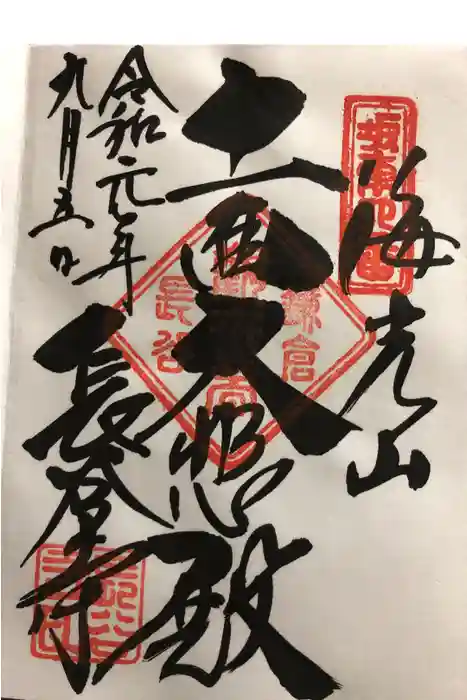 海光山
坂東四番
十一面大悲殿
鎌倉
長谷
令和元年
九月五日
長谷寺